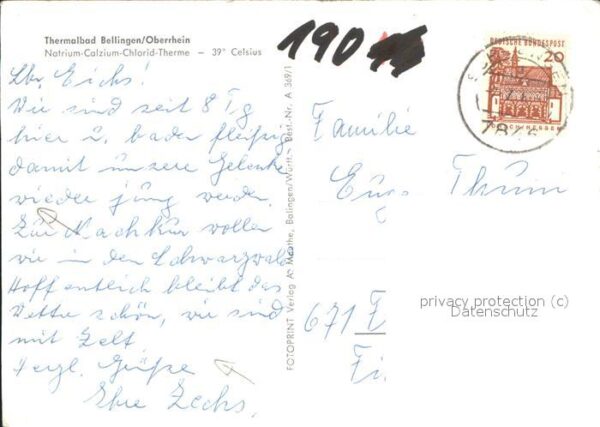 Thermalbad Bellingen/Oberrhein
Natrium-Calzium-Chlorid-Therme — 39° Celsius
Wir sind seit 8 Tg
hier u. baden fleißig
damit unsere Gelenke
wieder jung werden.
Zur Nachkur wollen
wir in den Schwarzwald
Hoffentlich bleibt das
Wetter schön, wir sind
mit Zelt
Herzl. Grüße
Ihre
FOTOPRINT Verlag A. Maathe, Balingen/Württ. - Best.-Nr. A 369/1
190
DEUTSCHE BUNDESPOST
20
LORSCH/HESSEN
Familie
Thum
671
privacy protection (c)
Datenschutz